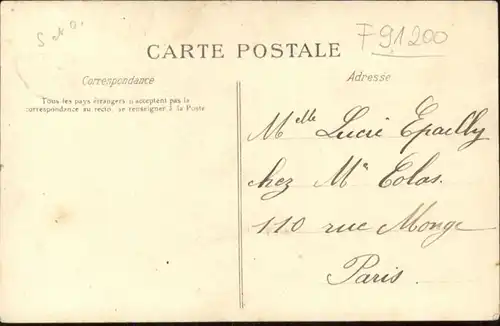 S. N. D.
F91200
CARTE POSTALE
Correspondance
Tous les pays étrangers n'acceptent pas la
correspondance au recto, se renseigner à la Poste
Adresse
Melle Lucie Epailly
chez Me Colas.
110 rue Monge
Paris.